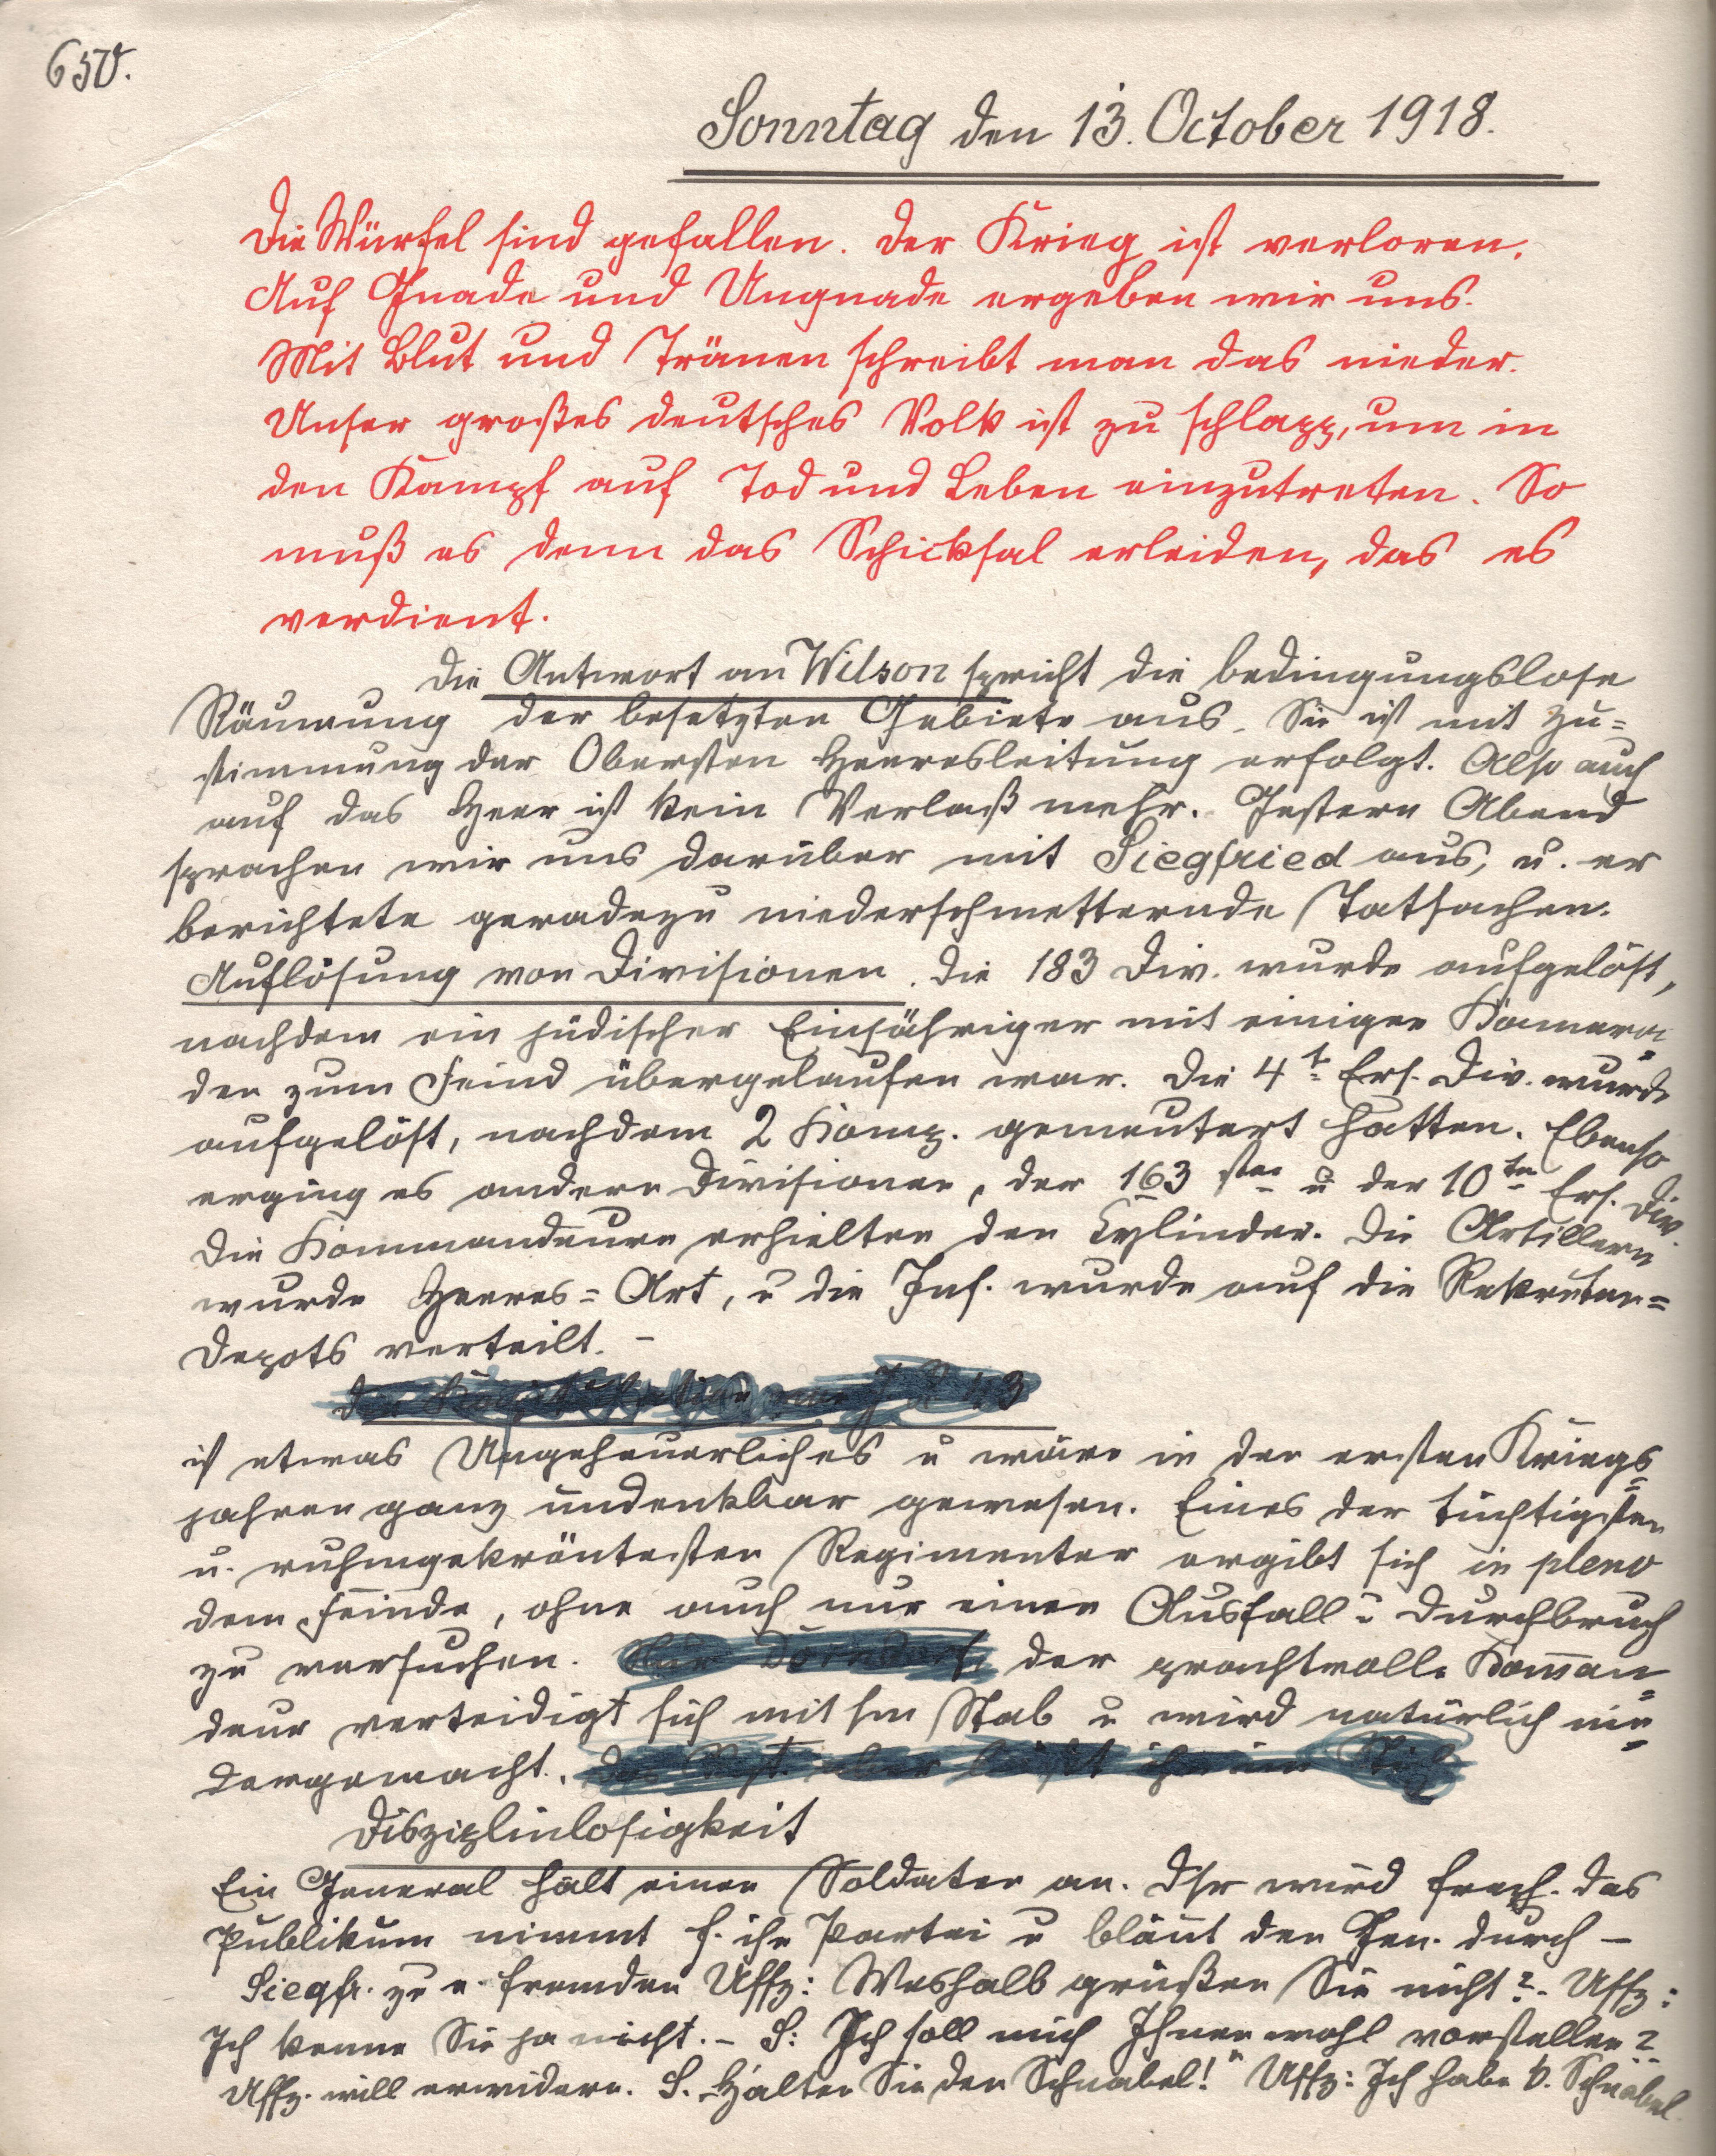 650.
Sonntag den 13. October 1918.
Die Würfel sind gefallen. Der Krieg ist verloren.
Auf Gnade und Ungnade ergeben wir uns.
Mit Blut und Tränen schreibt man das nieder.
Unser großes deutsches Volk ist zu schlapp, um in
den Kampf auf Tod und Leben einzutreten. So
muß es denn das Schicksal erleiden, das es
verdient.
Die Antwort an Wilson spricht die bedingungslose
Räumung der besetzten Gebiete aus. Sie ist mit Zu=
stimmung der Obersten Heeresleitung erfolgt. Also auch
auf das Heer ist kein Verlaß mehr. Gestern Abend
sprachen wir uns darüber mit Siegfried aus, u. er
berichtete geradezu niederschmetternde Tatsachen.
Auflösung von Divisionen. Die 183 Div. wurde aufgelöst,
nachdem ein jüdischer Einjähriger mit einigen Kamera=
den zum Feind übergelaufen war. Die 4t. Ers. Div. wurde
aufgelöst, nachdem 2 Komp. gemeutert hatten. Ebenso
erging es andern Divisionen, der 163 sten u der 10ten Ers. Div.
Die Kommandeure erhielten den Cylinder. Die Artillerie
wurde Heeres=Art, u die Inf. wurde auf die Rekruten=
Depots verteilt. –
ist etwas Ungeheuerliches u wäre in den ersten Kriegs=
jahren ganz undenkbar gewesen. Eines der tüchtigsten
u. ruhmgekröntesten Regimenter ergibt sich in pleno
dem Feinde, ohne auch nur einen Ausfall u Durchbruch
zu versuchen. der prachtvolle Komman=
deur verteidigt sich mit sm Stab u wird natürlich nie=
dergemacht.
Disziplinlosigkeit
Ein General hält einen Soldaten an. Dsr wird frech. Das
Publikum nimmt f. ihn Partei u bläut den Gen. durch –
Siegfr. zu e. fremden Uffz: Weshalb grüßen Sie nicht? – Uffz:
Ich kenne Sie ja nicht. – S: Ich soll mich Ihnen wohl vorstellen?
Uffz. will erwidern. S. Halten Sie den Schnabel!" Uffz: Ich habe k. Schnabel